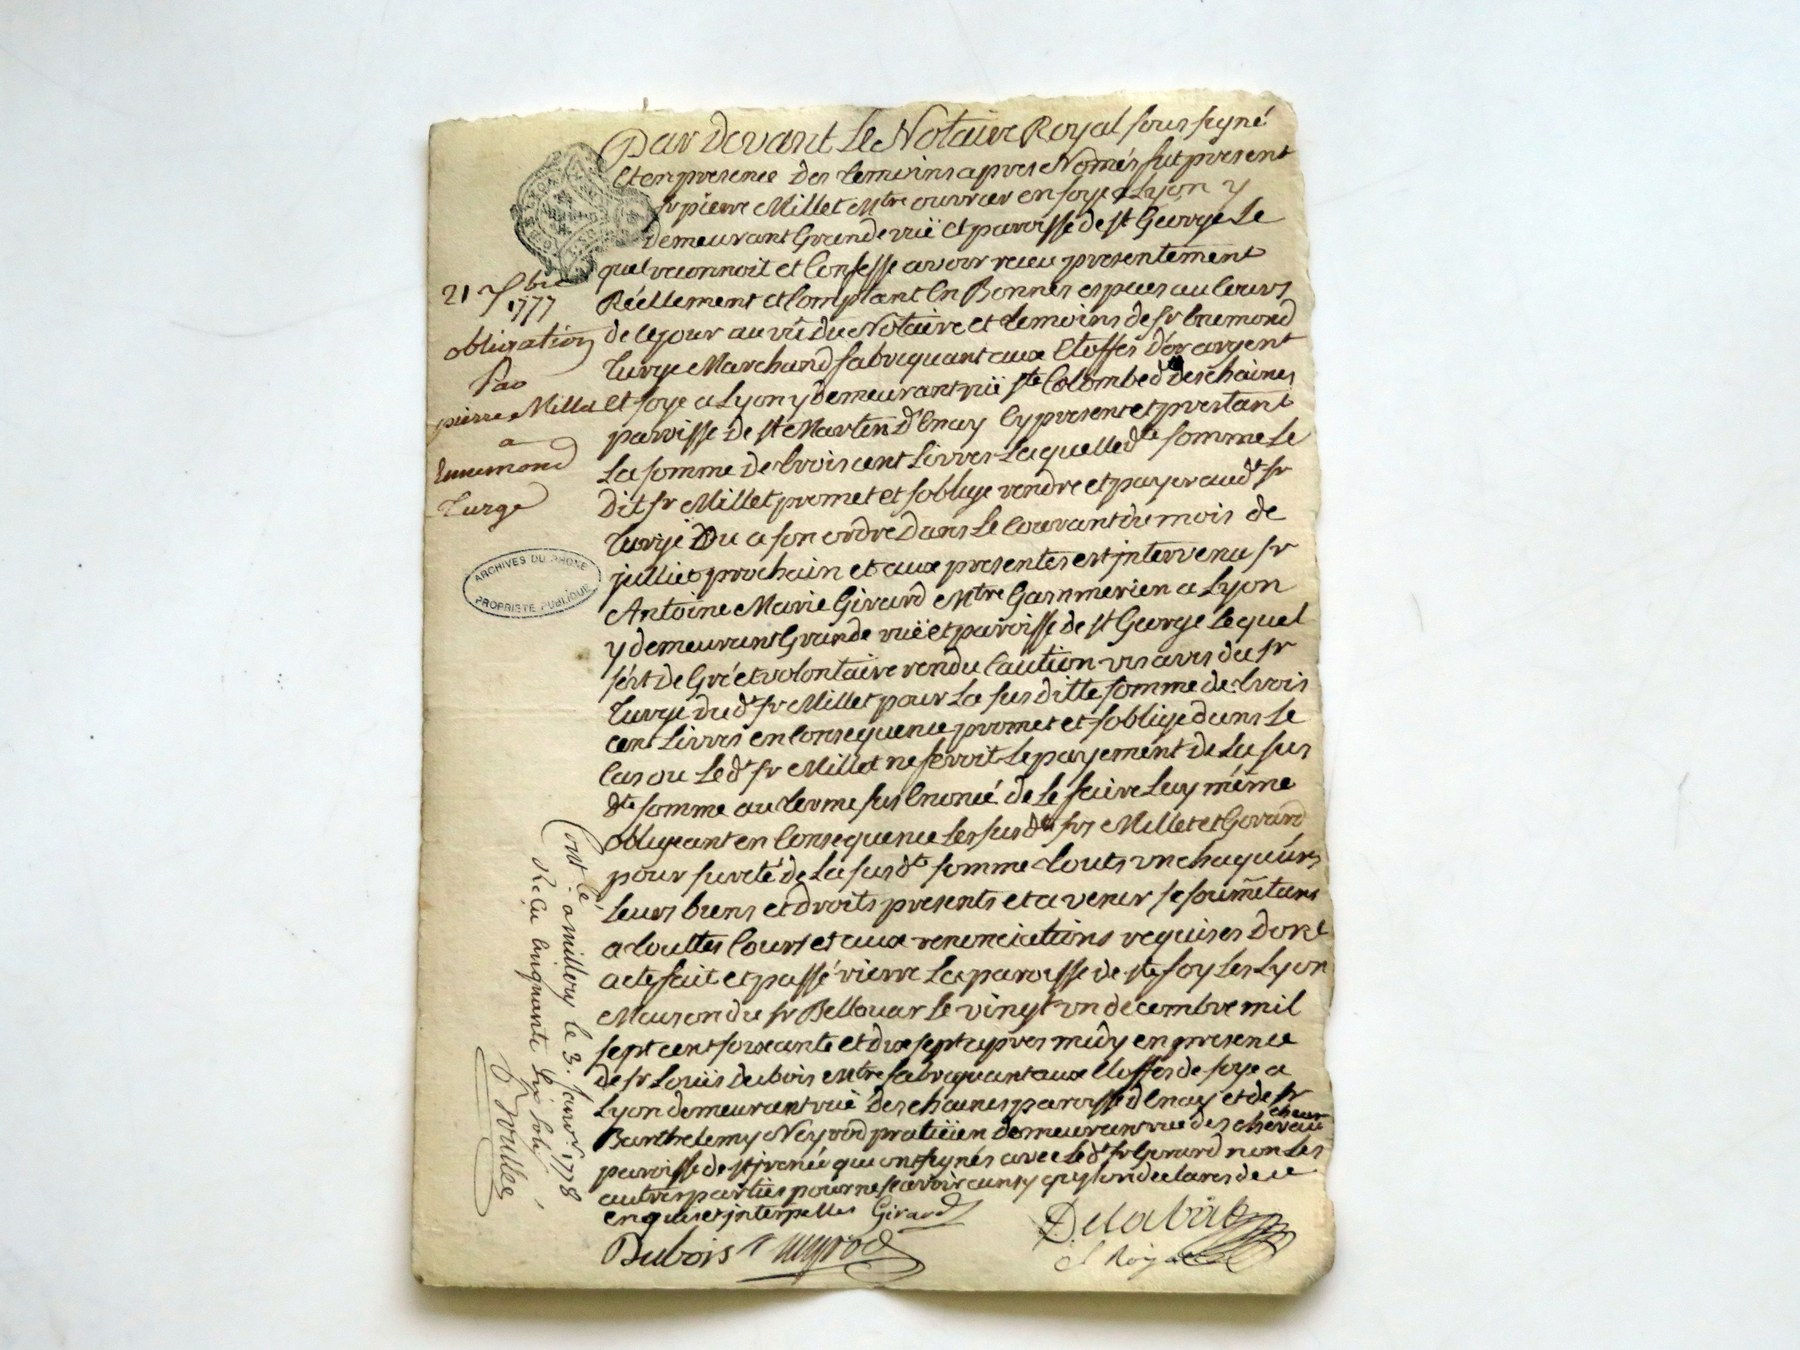 Par Devant Le Notaire Royal sous signé
Et en presence des temoins apres Només fut present
sr pierre Millet Mtre ouvrier en soye a Lyon y
demeurant Grande ruë et paroisse de st George Le
quel reconnoit et Confesse avoir receu presentement
Réellement et Comptant En Bonnes especes au Cours
de ce jour au vû du Notaire et temoins de sr Enemond
Turge Marchand fabriquant aux Etoffes d'or argent
et soye a Lyon y demeurant ruë ste Colombe dte des chaines
paroisse de st Martin d'Enay Cy present et prestant
La somme de trois cent Livres Laquelle dte somme Le
dit sr Millet promet et s'oblige rendre et payer aud sr
Turge Ou a son ordre Dans Le Courant du mois de
julliet prochain et aux presentes est intervenu sr
Antoine Marie Girard Mtre Gammerien a Lyon
y demeurant Grande ruë et paroisse de st George Lequel
s'est de Gré et volontaire rendu Caution vis a vis du sr
Turge du dt sr Millet pour La sus ditte somme de trois
cent Livres en Consequence promet et s'oblige dans Le
Cas ou Le dt sr Millet ne feroit Le payement de La sus
dte somme au terme sus Enoncé de Le faire Luy méme
obligeant en Consequence Les sus dts srs Millet et Girard
pour sureté de La sus dte somme touts un chaquuns
Leurs biens et droits presents et a venir se soumetans
a touttes Cours et aux renonciations requises Dont
acte fait et passé rierre La paroisse de ste foy Les Lyon
Maison du sr Bellouar Le vingt un decembre mil
sept cent soixante et dix sept apres midy en presence
de sr Louis dubois Mtre fabriquant aux Etoffes de soye a
Lyon demeurant ruë des chaines paroisse d'Enay et de sr
Barthelemy Neyrod praticien demeurant rue des chevau
cheur
paroisse de st irenée qui ont signés avec Le dt sr Girard non Les
autres parties pour ne sçavoir ainsy qu'ils ont declarés de ce
enquis et interpellés Girard
Dubois Neyrod
Delabât
n Royal
21 Xbre
1777
obligation
Par
pierre Millet
a
Ennemond
Turge
ARCHIVES DU RHONE
PROPRIETE PUBLIQUE
Contlé a millery le 3. Janvr. 1778
Reçu Cinquante six sols